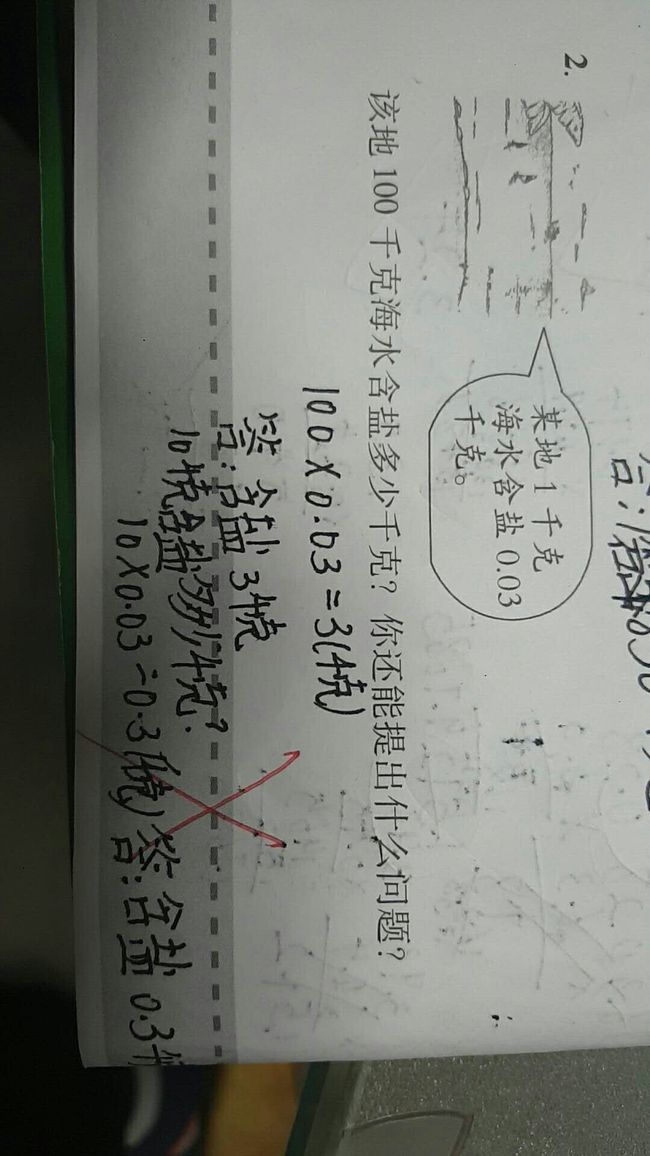 2.
某地1千克
海水含盐0.03
千克。
该地100千克海水含盐多少千克?你还能提出什么问题?
100×0.03=3(千克)
答:含盐3千克
10千克含盐多少千克?
10×0.03=0.3(千克)答:含盐0.3千